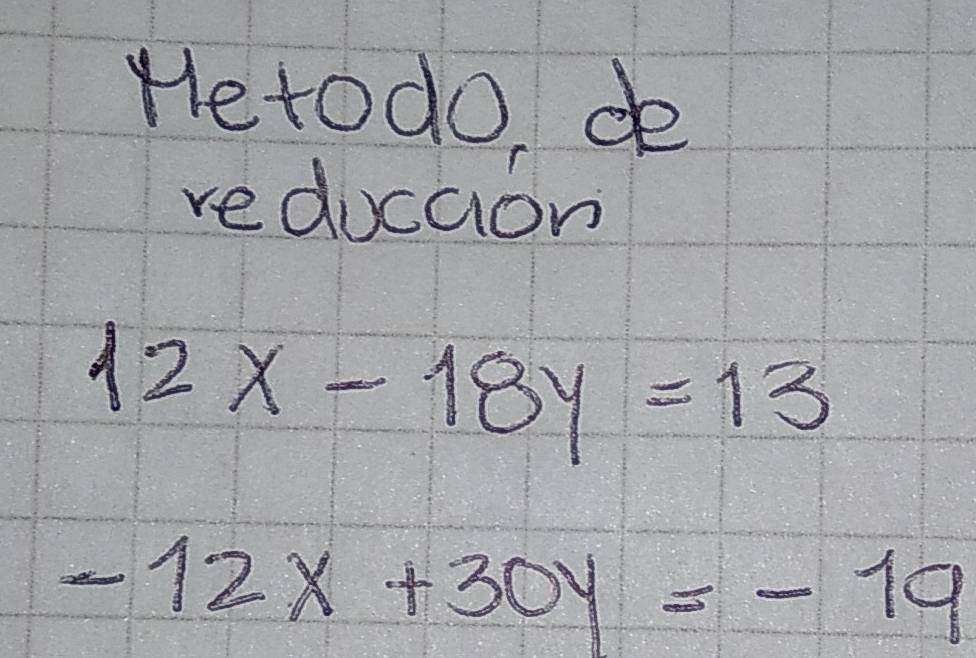 Metodo, de
reducción
12x - 18y = 13
-12x + 30y = - 19